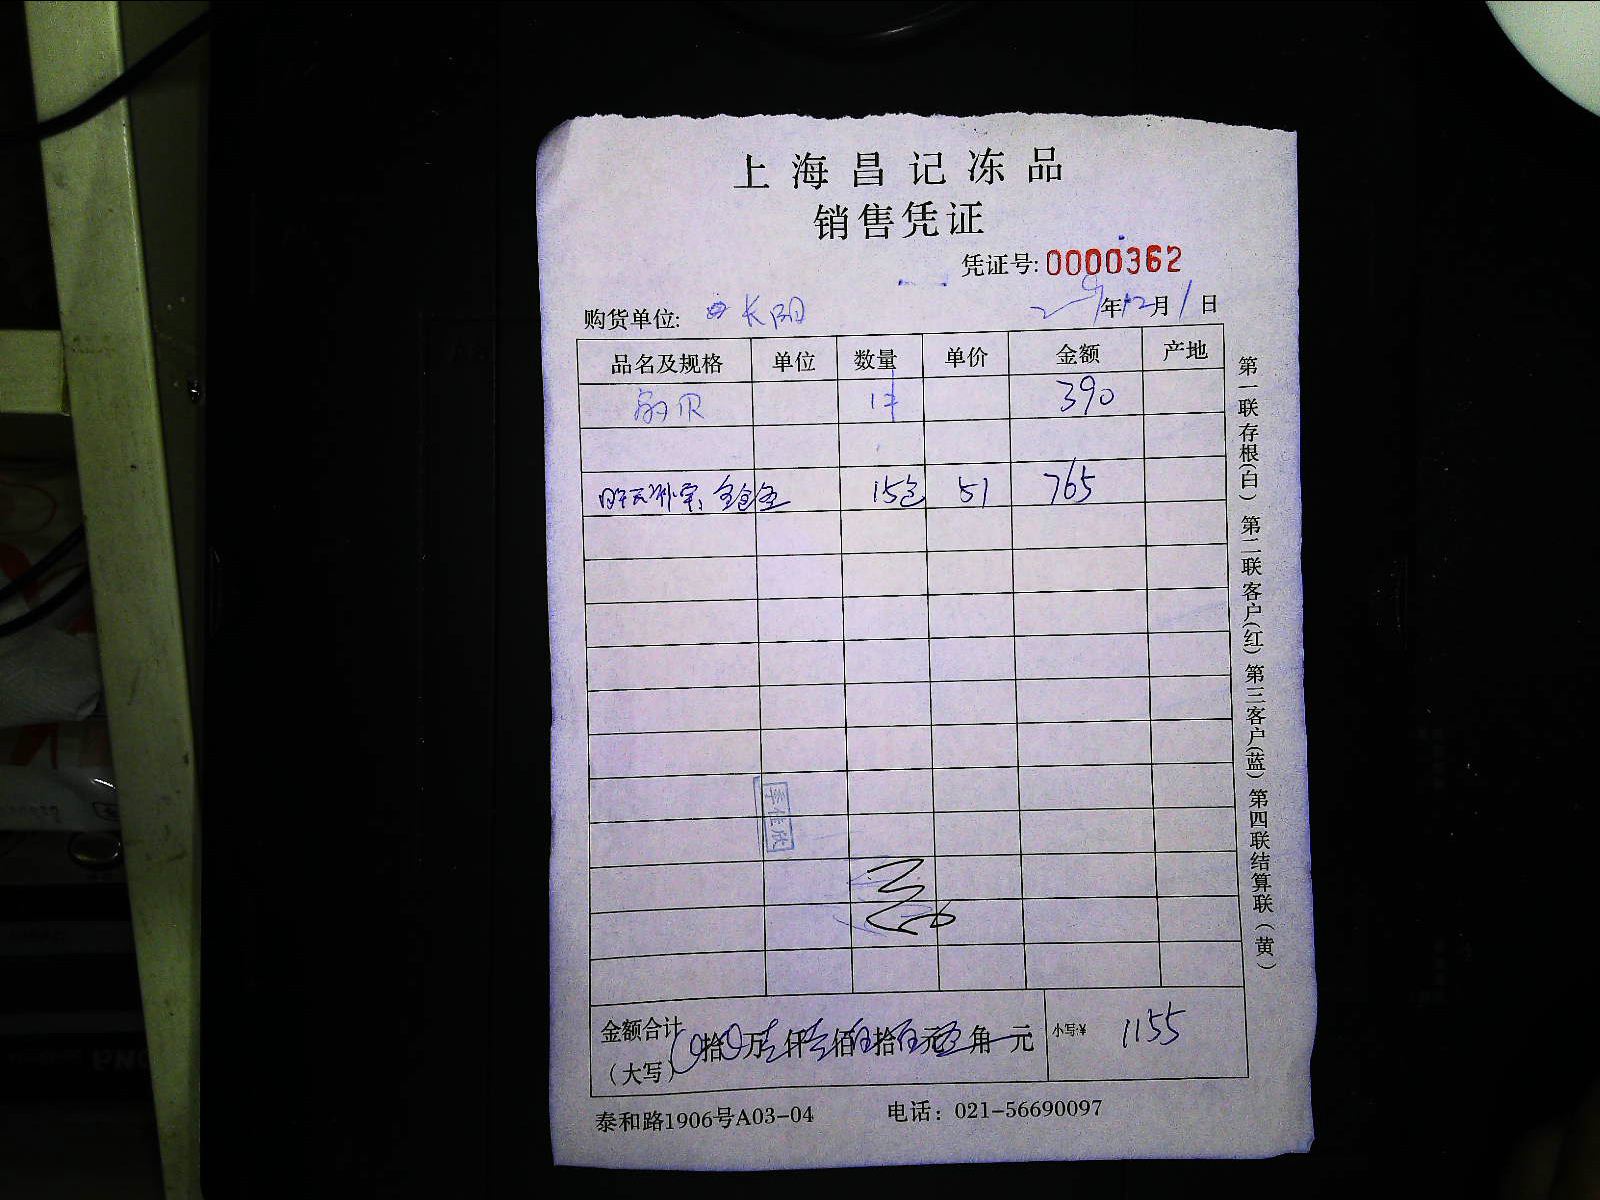 上海昌记冻品
销售凭证
凭证号: 0000362
购货单位: 长阳 年12月1日
品名及规格 单位 数量 单价 金额 产地
贝 1件 390
昨天补 15包 51 765
李佳欣
金额合计（大写） 拾 万 仟 佰 拾 元 角 元 小写:¥ 1155
泰和路1906号A03-04 电话：021-56690097
第一联存根(白) 第二联客户(红) 第三客户(蓝) 第四联结算联（黄）